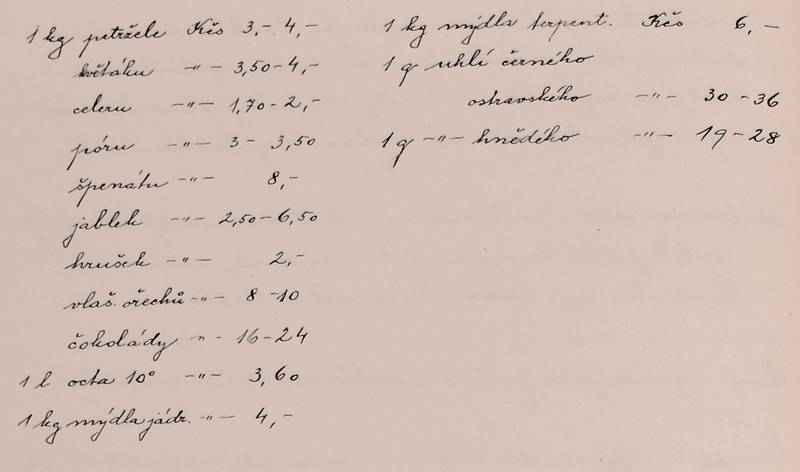 1 kg petržele Kčs 3,- 4,-
květáku -"- 3,50-4,-
celeru -"- 1,70-2,-
póru -"- 3 - 3,50
špenátu -"- 8,-
jablek -"- 2,50-6,50
hrušek -"- 2,-
vlaš. ořechů -"- 8-10
čokolády -"- 16-24
1 l octa 10° -"- 3,60
1 kg mýdla jádr. -"- 4,-
1 kg mýdla terpent. Kčs 6,-
1 q uhlí černého
ostravského -"- 30-36
1 q -"- hnědého -"- 19-28